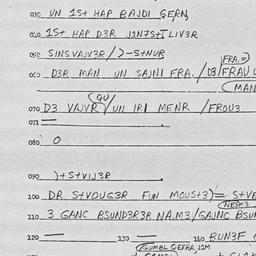 030 UN 1S+ HAP BAJDI GERN,
040 1S+ HAP D3R J1N7S+T LIV3R
050 SINSVAJV3R / )-S+NUR
FRA.=)
060 D3R MAN UN SAJNI FRA. / D3/FRAU
(MAN
(QU/
070 D3 VAJVR / UN IRI MENR / FROU3
071 —
080 O
090 )+S+VIJ3R
100 DR S+VOUG3R FUN MOUS+3)= S+VE
(NE3M3
110 3 GANC BSUND3R3R NA.M3 / GAJNC BSU
120 — 130 — 140 BUN3F
(GUMBL GEFRA, J1M